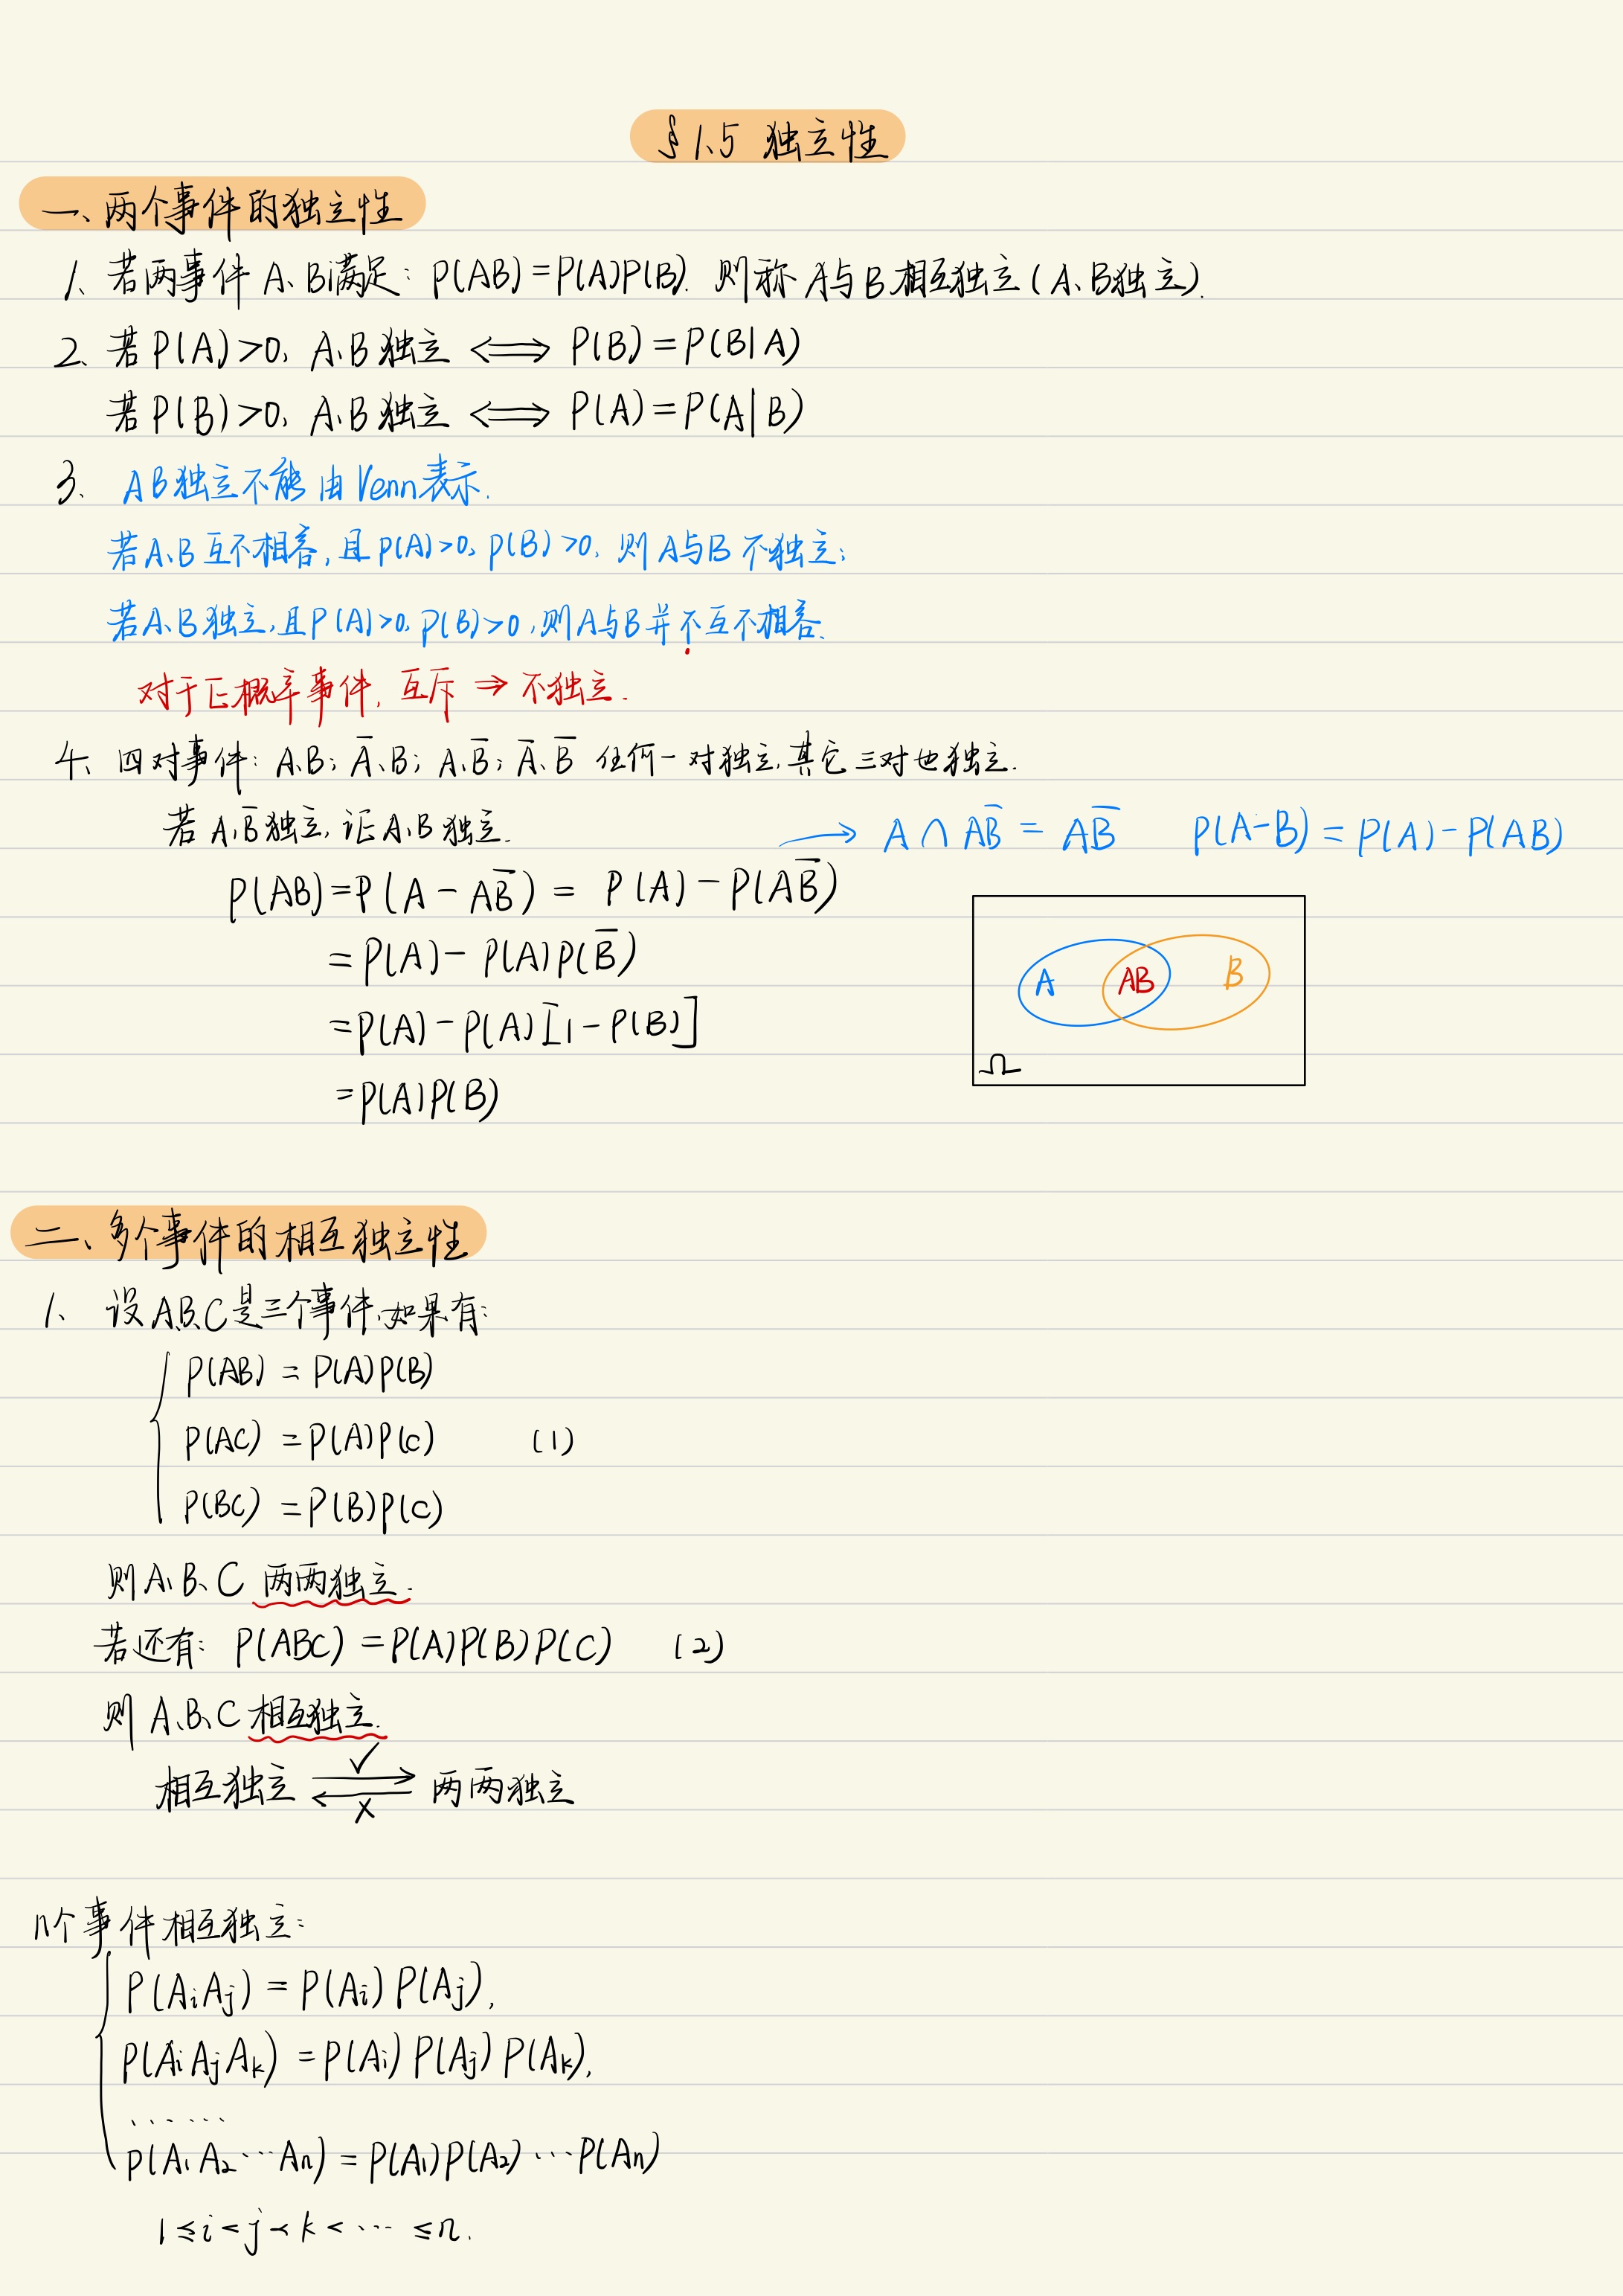 §1.5 独立性
一、两个事件的独立性
1、若两事件 A、B满足：P(AB)=P(A)P(B). 则称 A与B 相互独立(A、B独立).
2、若 P(A)>0, A、B 独立 ⟺ P(B)=P(B|A)
若 P(B)>0, A、B 独立 ⟺ P(A)=P(A|B)
3、AB独立不能由Venn表示.
若A、B 互不相容,且P(A)>0, P(B)>0, 则A与B 不独立;
若A、B 独立,且P(A)>0, P(B)>0,则A与B并不互不相容.
对于正概率事件, 互斥 ⇒ 不独立.
4、四对事件: A、B; A̅、B; A、B̅; A̅、B̅ 任何一对独立,其它三对也独立.
若 A、B̅独立,证A、B 独立.
→ A∩AB̅ = AB̅ P(A-B)=P(A)-P(AB)
P(AB)=P(A-AB̅) = P(A)-P(AB̅)
=P(A)-P(A)P(B̅)
=P(A)-P(A)[1-P(B)]
=P(A)P(B)
A AB B
Ω
二、多个事件的相互独立性
1、设A、B、C是三个事件,如果有:
P(AB)=P(A)P(B)
P(AC)=P(A)P(C) (1)
P(BC)=P(B)P(C)
则A、B、C 两两独立.
若还有: P(ABC)=P(A)P(B)P(C) (2)
则 A、B、C 相互独立.
✓
相互独立 ⇄ 两两独立
×
n个事件相互独立:
P(AᵢAⱼ)=P(Aᵢ)P(Aⱼ),
P(AᵢAⱼAₖ)=P(Aᵢ)P(Aⱼ)P(Aₖ),
······
P(A₁A₂···Aₙ)=P(A₁)P(A₂)···P(Aₙ)
1≤i<j<k<···≤n.